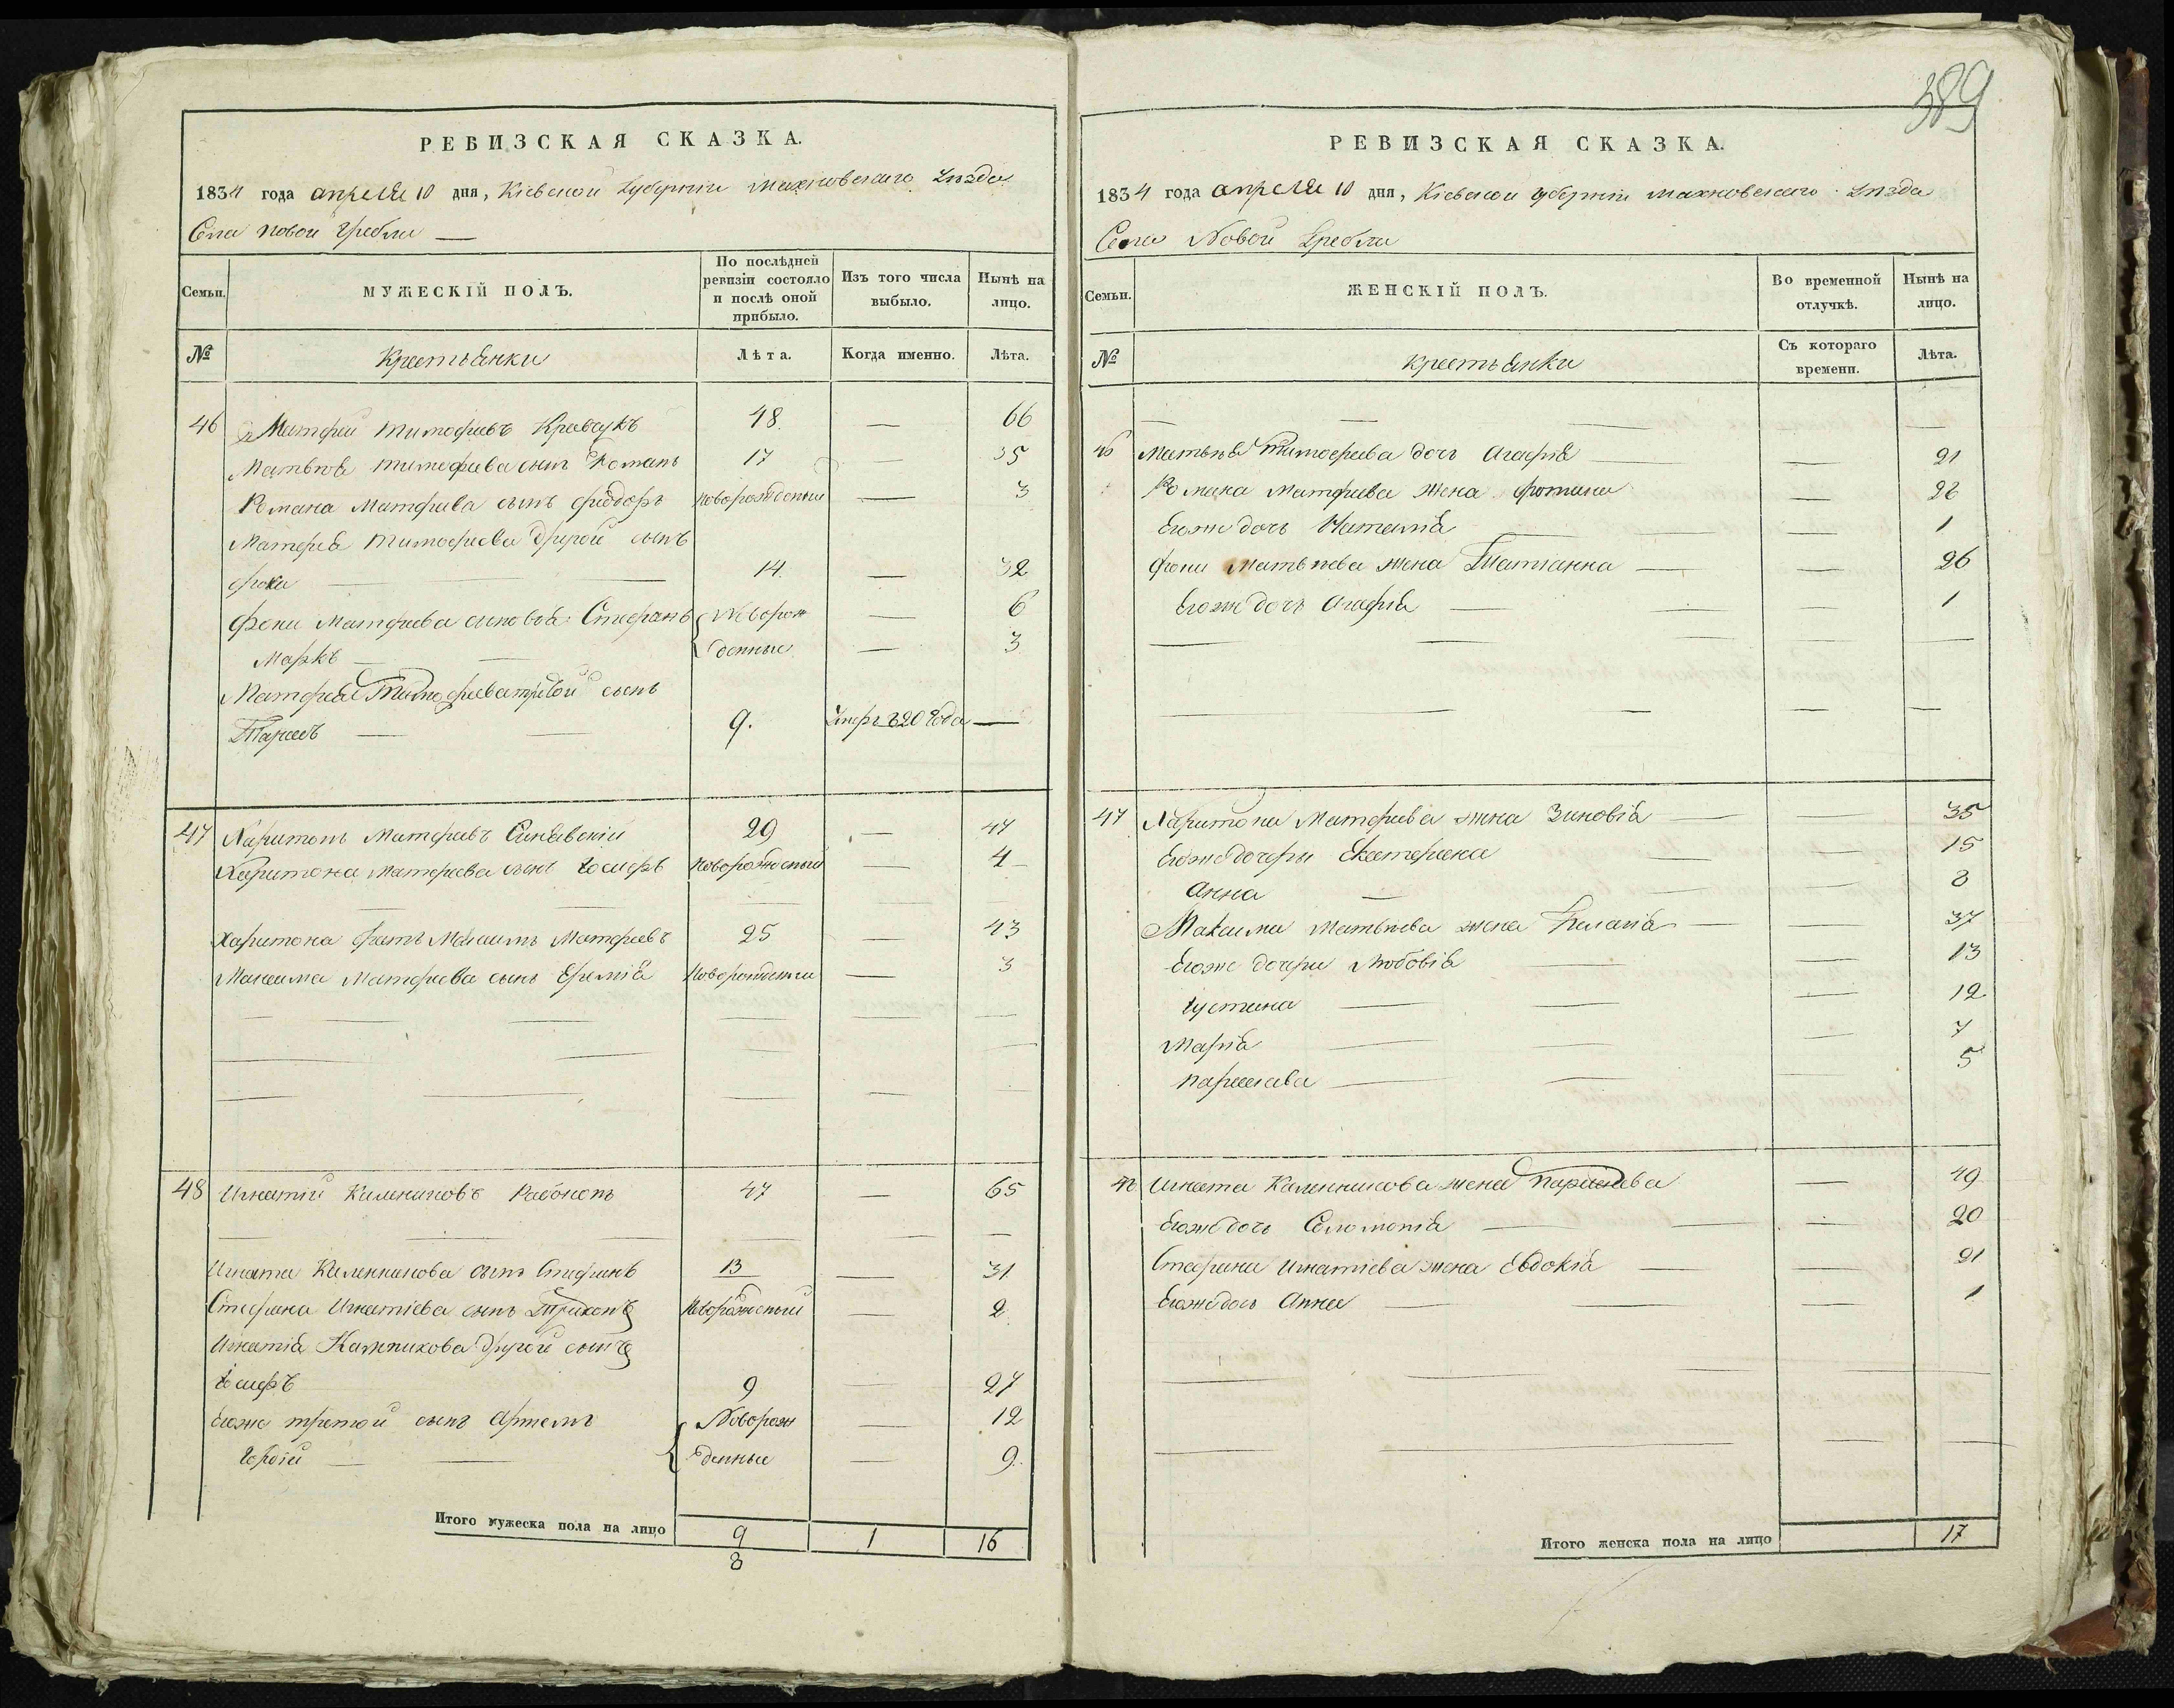 389
РЕВИЗСКАЯ СКАЗКА.
1834 года апреля 10 дня, Кіевской Губерніи Махновскаго Уезда
Села Новой Гребли —
Семьи.
МУЖЕСКІЙ ПОЛЪ.
По послѣдней ревизіи состояло и послѣ оной прибыло.
Изъ того числа выбыло.
Нынѣ на лицо.
№
Крестьянки
Лѣта.
Когда именно.
Лѣта.
46 Матфей Тимофеевъ Кравчукъ 48. — 66
Матвѣя Тимофеева сынъ Романъ 17 — 35
Романа Матфеева сынъ Фіодоръ новорожденый — 3
Матфея Тимофеева другой сынъ
Фока — 14. — 32
Фоки Матфеева сыновья: Стефанъ Новорож — 6
Маркъ — денные — 3
Матфея Тимофеева третой сынъ
Тарасъ — 9. Умеръ 820 Года —
47 Харитонъ Матфеевъ Синявскій 29 — 47
Харитона Матфеева сынъ Іосифъ новорожденый — 4
Харитона братъ Максимъ Матфеевъ 25 — 43
Максима Матфеева сынъ Еремія Новорожденый — 3
48 Игнатій Калениковъ 47 — 65
Игната Каленникова сынъ Стефанъ 13 — 31
Стефана Игнатіева сынъ новорожденый — 2
Игнатія Каленикова другой сынъ
Іосифъ 9 — 27
Егоже третой сынъ Артемъ Новорож — 12
Юрдій — денные — 9.
Итого мужеска пола на лицо 9 1 16
8
РЕВИЗСКАЯ СКАЗКА.
1834 года апреля 10 дня, Кіевской Губерніи Махновскаго Уезда
Села Новой Гребли
Семьи.
ЖЕНСКІЙ ПОЛЪ.
Во временной отлучкѣ.
Нынѣ на лицо.
№
крестьянки
Съ котораго времени.
Лѣта.
46 Матвѣя Тимофеева дочь Агафія — 21
Романа Матфеева жена Фотина — 28
Егоже дочь Наталія — 1
Фоки Матвѣева жена Татіанна — 26
Егоже дочь Агафія — 1
47 Харитона Матфеева жена Зиновія — 35
Егоже дочеры Екатерина — 15
Анна — 8
Максима Матвѣева жена Пелагія — 37
Егоже дочери Любовія — 13
Іустина — 12
Марія — 7
Параскева — 5
48 Игната Каленникова жена Параскева — 49
Егоже дочь Соломонія — 20
Стефана Игнатіева жена Евдокія — 21
Егоже дочь Анна — 1
Итого женска пола на лицо 17